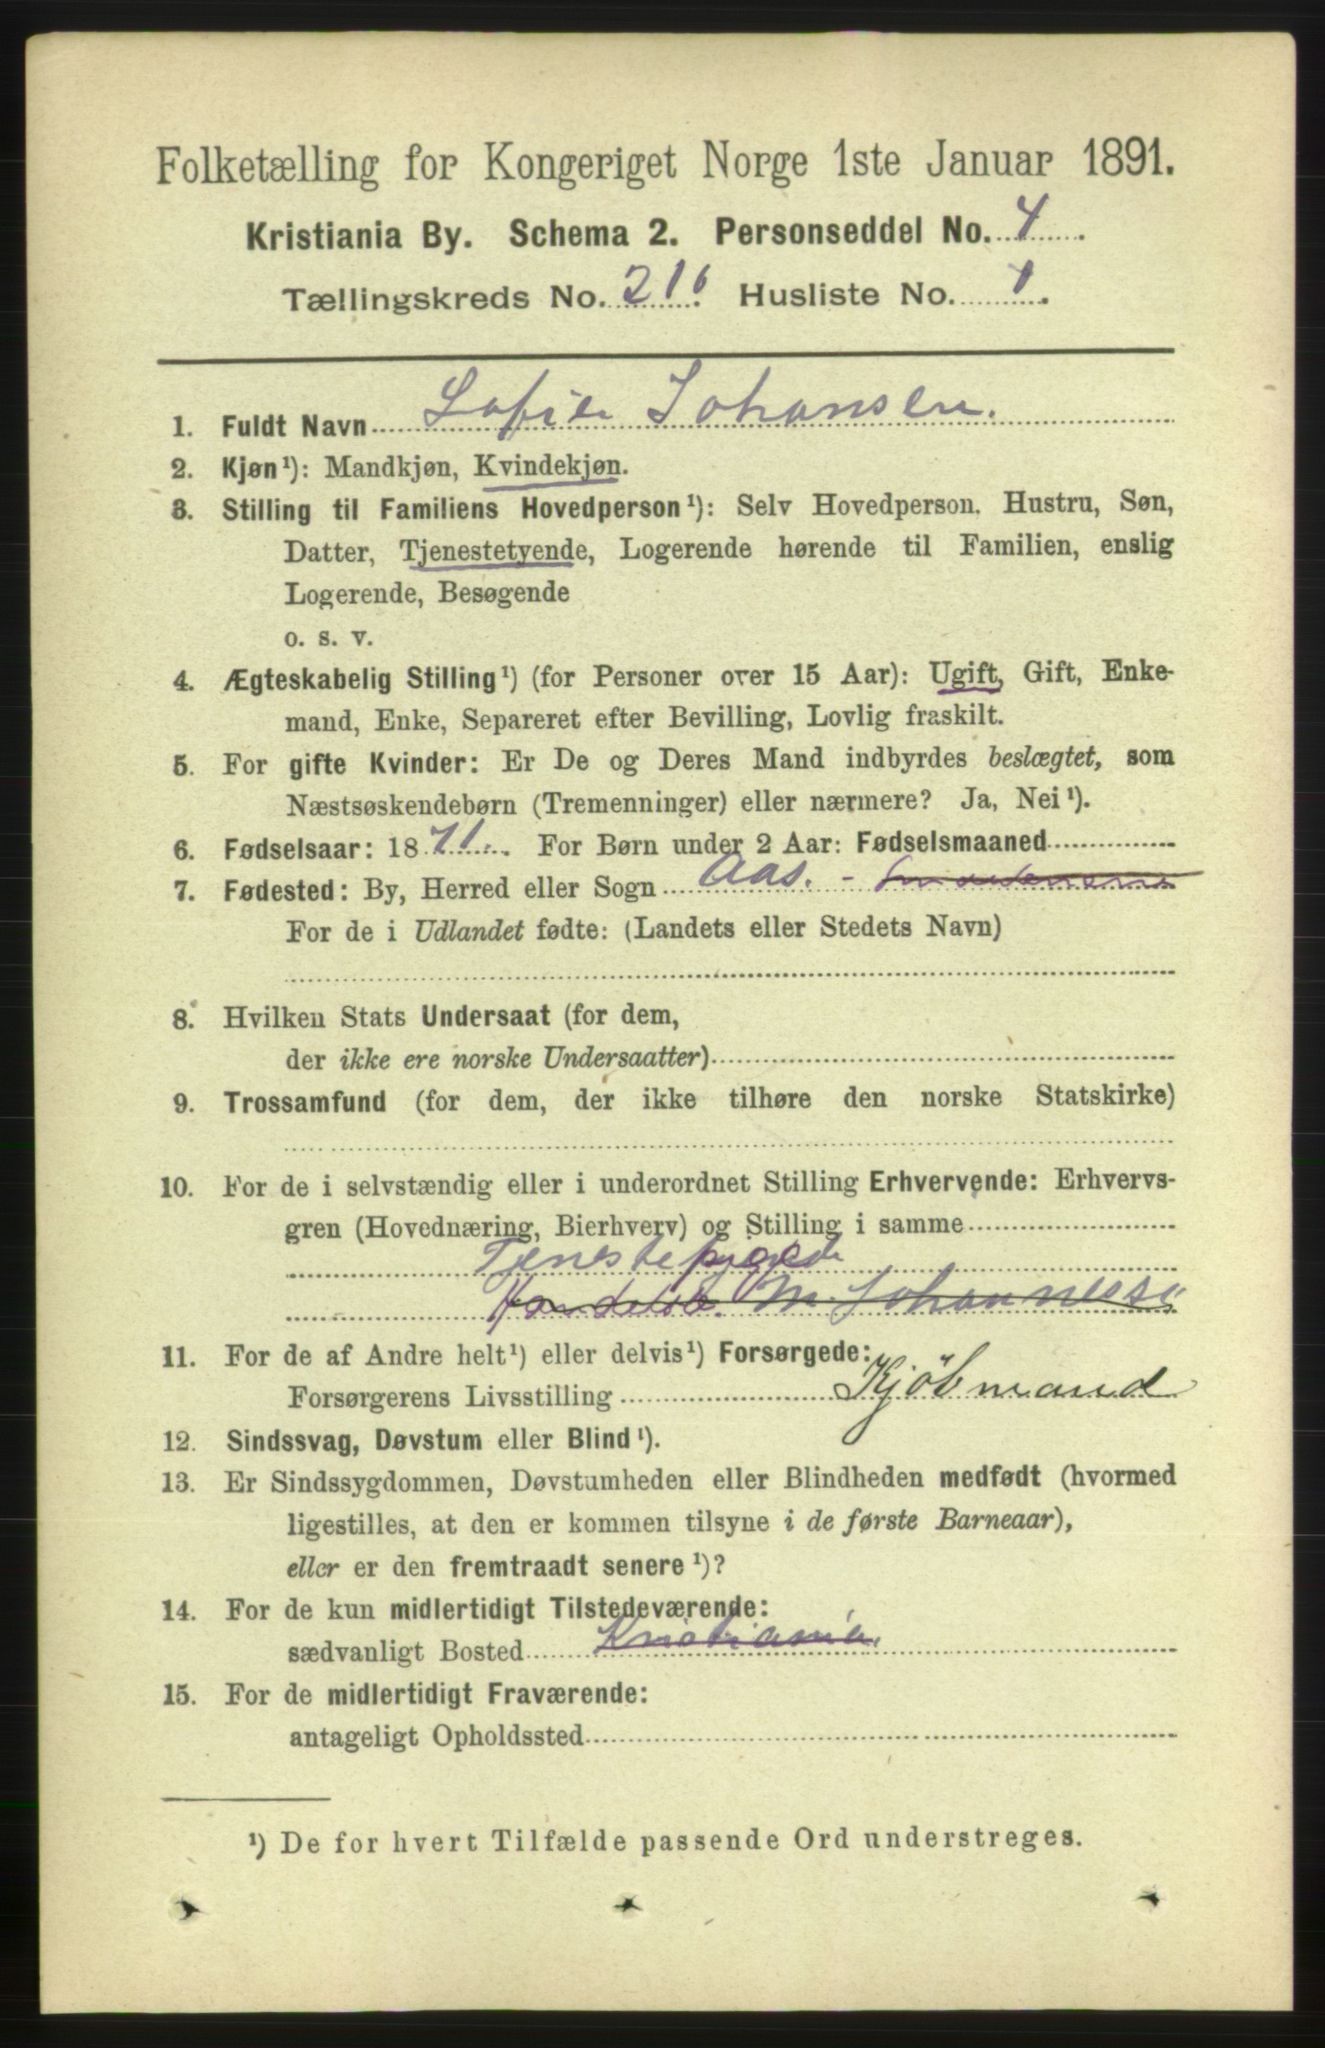 Folketælling for Kongeriget Norge 1ste Januar 1891.
Kristiania By. Schema 2. Personseddel No. 4.
Tællingskreds No. 216. Husliste No. 1.
1. Fuldt Navn Sofie Johansen.
2. Kjøn¹): Mandkjøn, Kvindekjøn.
3. Stilling til Familiens Hovedperson¹): Selv Hovedperson, Hustru, Søn,
Datter, Tjenestetyende, Logerende hørende til Familien, enslig
Logerende, Besøgende
o. s. v.
4. Ægteskabelig Stilling¹) (for Personer over 15 Aar): Ugift, Gift, Enke-
mand, Enke, Separeret efter Bevilling, Lovlig fraskilt.
5. For gifte Kvinder: Er De og Deres Mand indbyrdes beslægtet, som
Næstsøskendebørn (Tremenninger) eller nærmere? Ja, Nei¹).
6. Fødselsaar: 1871. For Børn under 2 Aar: Fødselsmaaned
7. Fødested: By, Herred eller Sogn Aas. -
For de i Udlandet fødte: (Landets eller Stedets Navn)
8. Hvilken Stats Undersaat (for dem,
der ikke ere norske Undersaatter)
9. Trossamfund (for dem, der ikke tilhøre den norske Statskirke)
10. For de i selvstændig eller i underordnet Stilling Erhvervende: Erhvervs-
gren (Hovednæring, Bierhverv) og Stilling i samme
Tjenestepige
M. Johanness
11. For de af Andre helt¹) eller delvis¹) Forsørgede:
Forsørgerens Livsstilling Kjøbmand
12. Sindssvag, Døvstum eller Blind¹).
13. Er Sindssygdommen, Døvstumheden eller Blindheden medfødt (hvormed
ligestilles, at den er kommen tilsyne i de første Barneaar),
eller er den fremtraadt senere¹)?
14. For de kun midlertidigt Tilstedeværende:
sædvanligt Bosted Kristiania.
15. For de midlertidigt Fraværende:
antageligt Opholdssted
¹) De for hvert Tilfælde passende Ord understreges.